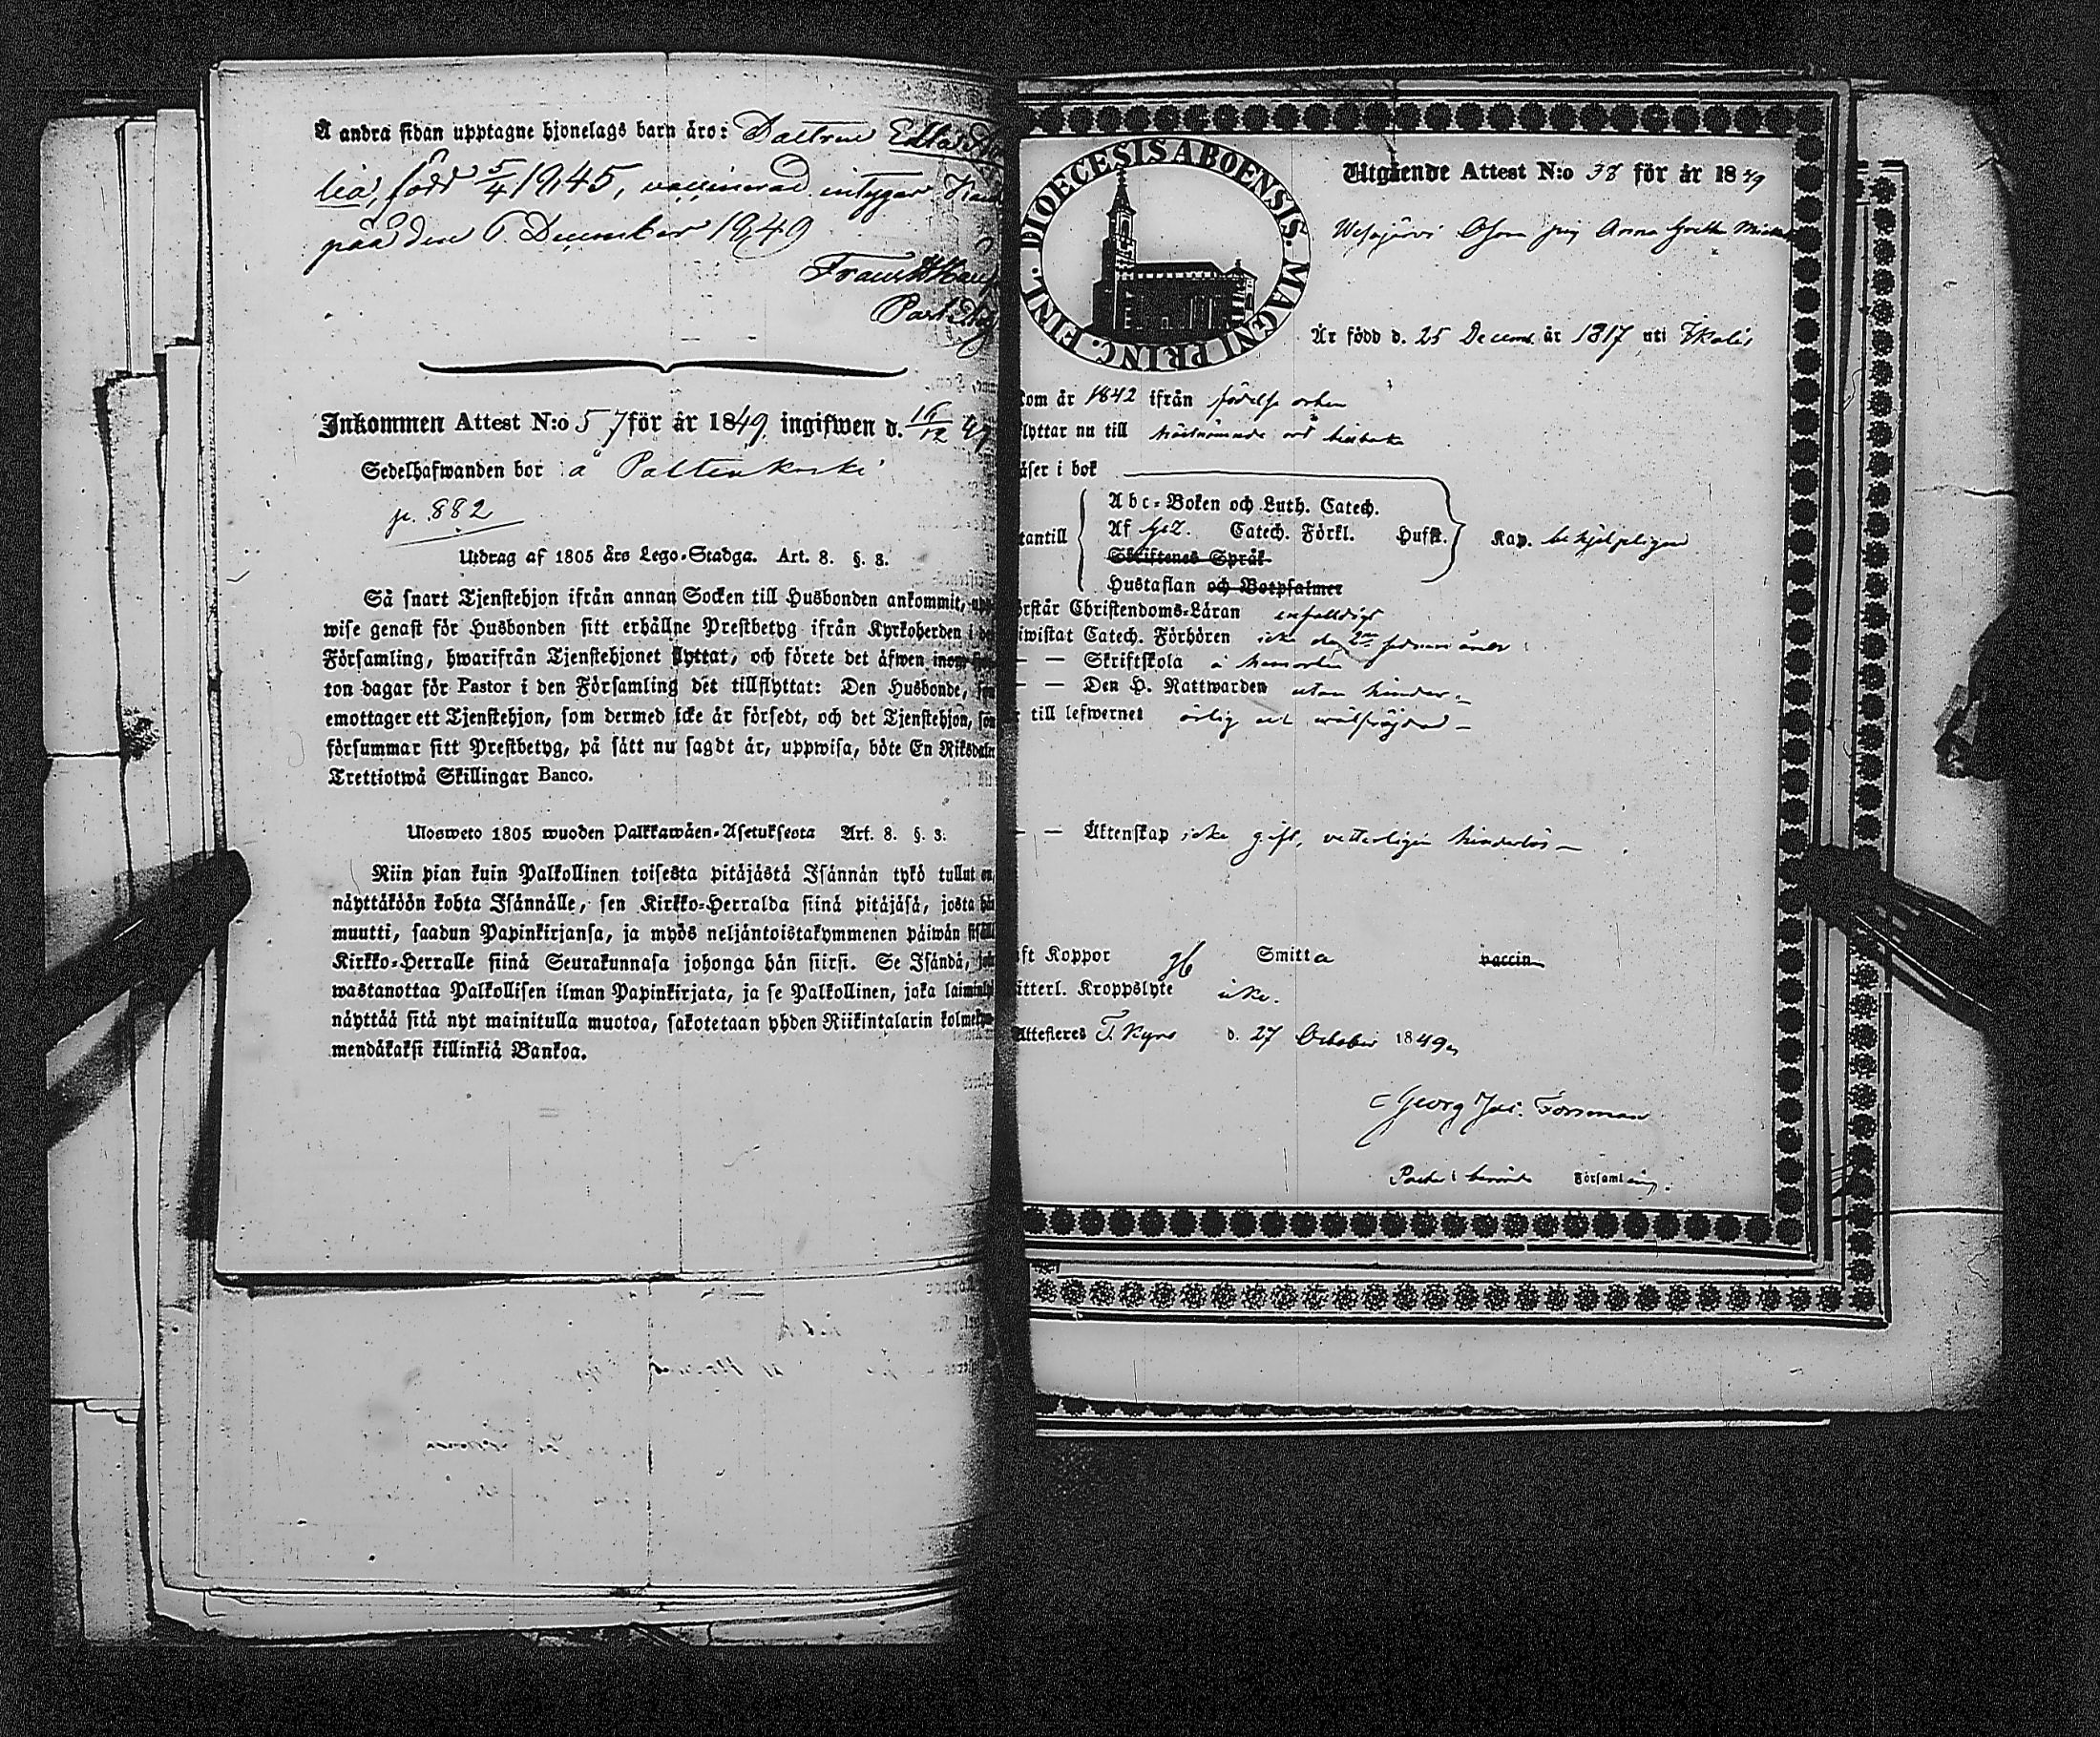 Å andra sidan upptagne hjonelags barn äro: Dottren Edla
lia, född 5/4 1845, vaccinerad intygar
på den 6 December 1849
Frans
Past
Inkommen Attest N:o 57 för år 1849 ingifwen d. 16/12 49
Sedelhafwanden bor å Paltenkoski
p. 882
Utdrag af 1805 års Lego-Stadga. Art. 8. §. 3.
Så snart Tjenstehjon ifrån annan Socken till Husbonden ankommit,
wise genast för Husbonden sitt erhållne Prestbetyg ifrån Kyrkoherden i
Församling, hwarifrån Tjenstehjonet flyttat, och förete det äfwen inom
ton dagar för Pastor i den Församling det tillflyttat: Den Husbonde,
emottager ett Tjenstehjon, som dermed icke är försedt, och det Tjenstehjon,
försummar sitt Prestbetyg, på sätt nu sagdt är, uppwisa, böte En Riksdaler
Trettiotwå Skillingar Banco.
Ulosweto 1805 wuoden Palkkawäen-Asetuksesta Art. 8. §. 3.
Niin pian kuin Palkollinen toisesta pitäjästä Isännän tykö tullut on,
näyttäköön kohta Isännälle, sen Kirkko-Herralda siinä pitäjäsä, josta hän
muutti, saadun Papinkirjansa, ja myös neljäntoistakymmenen päiwän
Kirkko-Herralle siinä Seurakunnasa johonga hän siirsi. Se Isändä,
wastanottaa Palkollisen ilman Papinkirjata, ja se Palkollinen, joka
näyttää sitä nyt mainitulla muotoa, sakotetaan yhden Riikintalarin
mendäkaksi killinkiä Bankoa.
FINL. DIOECESIS ABOENSIS. MAGNI PRINC.
Utgående Attest N:o 38 för år 1849
Anna Greta
Är född d. 25 Decemb. år 1817 uti Ikalis
kom år 1842 ifrån födelse orten
flyttar nu till sistnämnde ort tillbaka
läser i bok
Abc-Boken och Luth. Catech.
utantill Af Catech. Förkl. Husst. Kap. behjelpligen
Skriftenes Språk
Hustaflan och Botpsalmer
förstår Christendoms-Läran enfaldigt
biwistat Catech. Förhören icke
— — Skriftskola å hemorten
— — Den H. Nattwarden utan hinder
är till lefwernet ärlig och wälfrejdad
— — Äktenskap icke gift, vetterligen hinderlös
haft Koppor Smitta vaccin
wetterl. Kroppslyte icke.
Attesteres T. Kyro d. 27 October 1849
Georg Jac. Forsman
Församling.